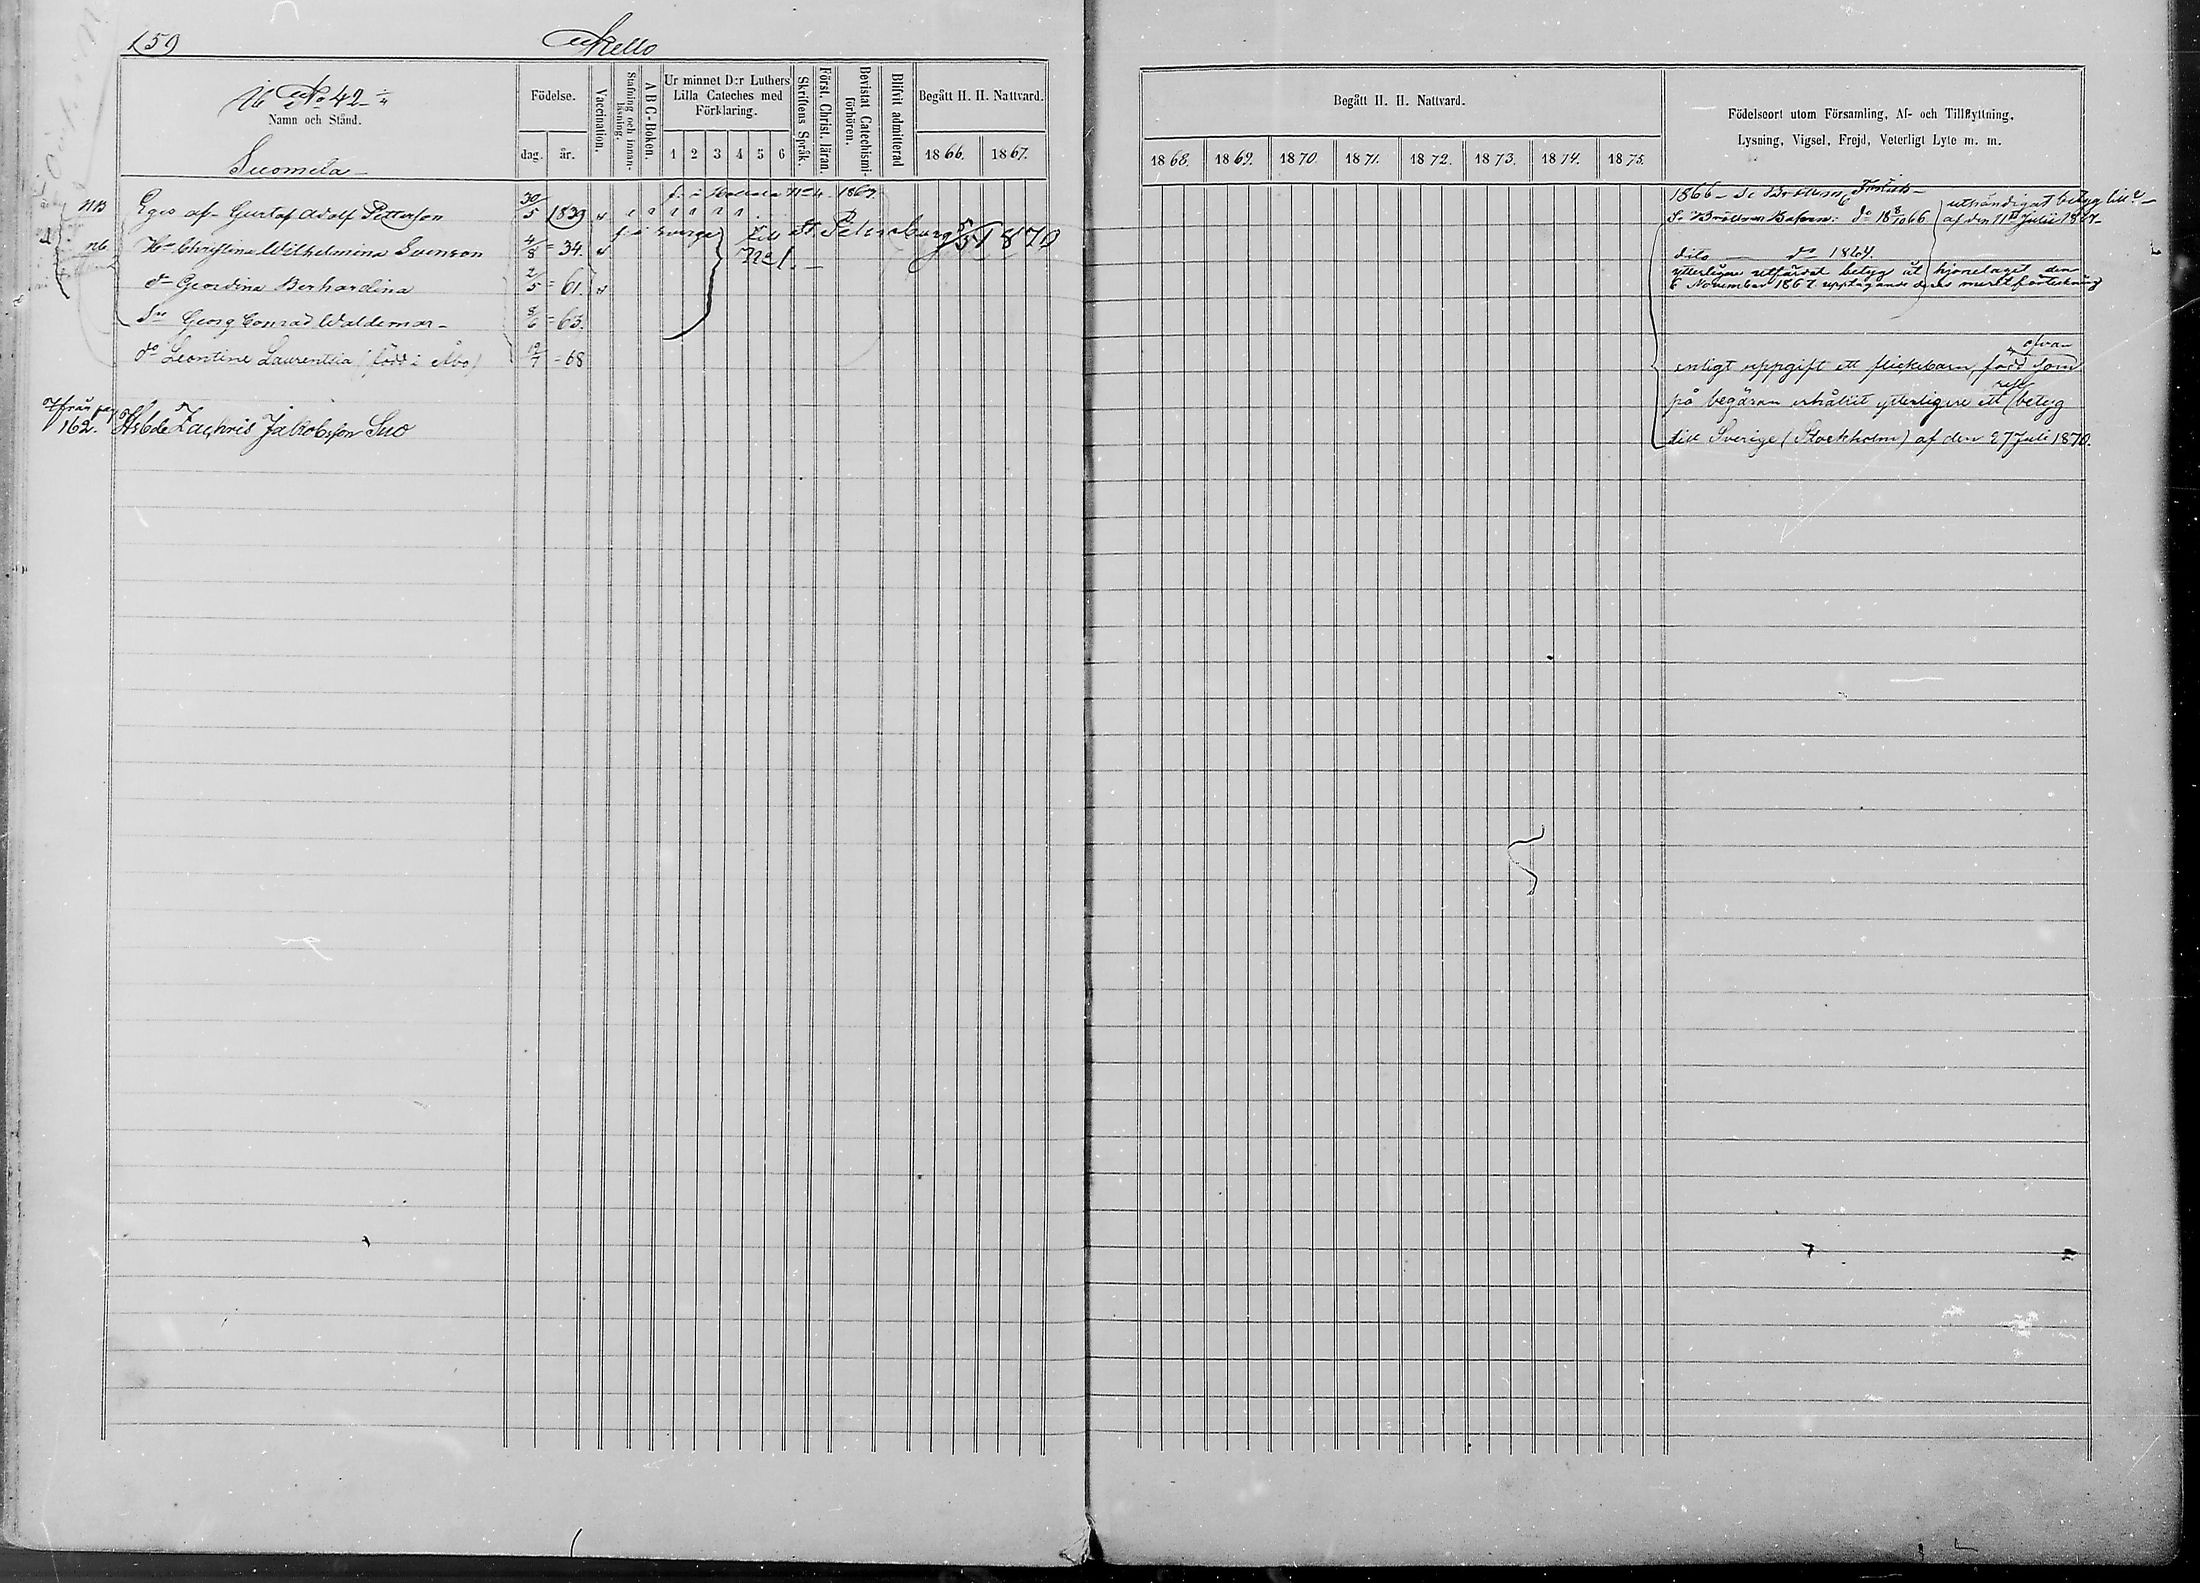 159
Kello
No 42
Namn och Stånd.
Suomela
Födelse.
dag. år.
Vaccination.
Stafning och innan-läsning.
A B C-Boken.
Ur minnet D:r Luthers
Lilla Cateches med
Förklaring.
1 2 3 4 5 6
Skriftens Språk.
Först. Christ. läran.
Bevistat Catechismi-förhören.
Blifvit admitterad
Begått H. H. Nattvard.
1866. 1867.
NB Eges af- Gustaf Adolf Petterson 30/5 1839
Hu Christina Wilhelmina Svenson 4/8 = 34.
till St. Petersburg 1870
No 1.
dr Geordina Berhardina 2/5 = 61.
Sn Georg Conrad Waldemar 8/6 = 63.
dr Leontine Laurentia (född i Åbo) 12/7 = 68
från pag
162. Zachris Jakobsson Suo
Begått H. H. Nattvard.
1868. 1869. 1870. 1871. 1872. 1873. 1874. 1875.
Födelseort utom Församling, Af- och Tillflyttning,
Lysning, Vigsel, Frejd, Veterligt Lyte m. m.
1866
uthändigat betyg
af den 11 Julii 1867
dito 1864.
ytterligare utfärdat betyg åt hjonelaget den
6 November 1867 upptagande deras
ofvan
enligt uppgift ett flickebarn, född som
på begäran erhållit ytterligare ett betyg
till Sverige (Stockholm) af den 27 Juli 1870.